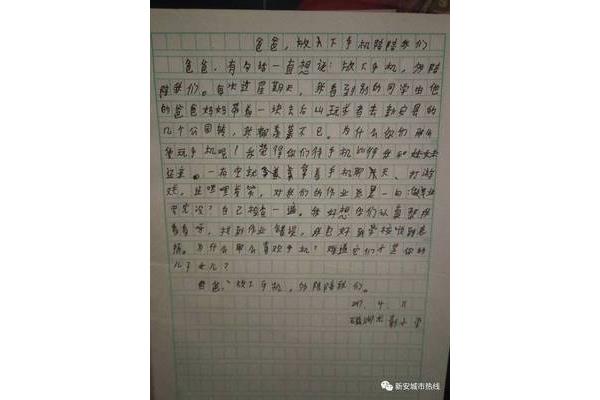 爸爸，放下手机陪陪我们
爸爸，有句话一直想说：放下手机，多陪
陪我们。每次过星期天，我看到别的同学由他
的爸爸妈妈带着一块去后山玩或者去新安县的
几个公园转，我都羡慕不已。为什么你们那么
爱玩手机呢！我觉得你们待手机比待我和妹妹
还亲。一有空就拿着手机聊聊天、打游
戏，还嘿嘿发笑，对我们的作业总是一句做
完没？自己检查一遍。我好想你们认真帮我
看看呀，找到作业错误，
为什么那么喜欢手机？难道它们才是你的
儿子女儿？
爸爸，放下手机，多陪陪我们。
2017. 4. 11
新安城市热线